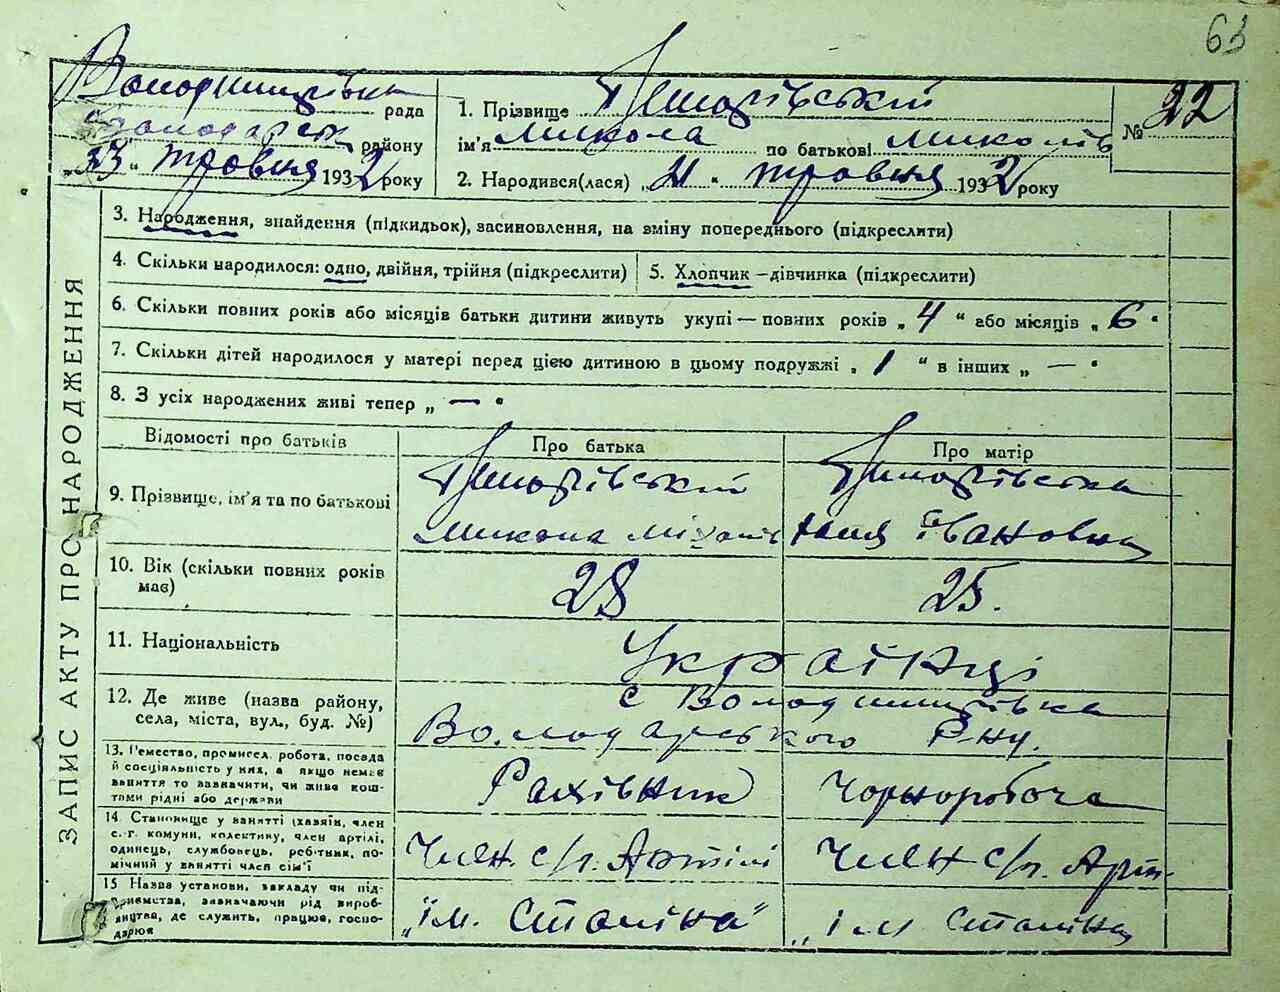 63
Володимирівка рада
Володарськ району
„23“ травня 1932 року
1. Прізвище
ім'я Микола по батькові Миколов
№ 22
2. Народився(лася) „21“ травня 1932 року
ЗАПИС АКТУ ПРО НАРОДЖЕННЯ
3. Народження, знайдення (підкидьок), засиновлення, на зміну попереднього (підкреслити)
4. Скільки народилося: одно, двійня, трійня (підкреслити)
5. Хлопчик — дівчинка (підкреслити)
6. Скільки повних років або місяців батьки дитини живуть укупі — повних років „4“ або місяців „6“
7. Скільки дітей народилося у матері перед цією дитиною в цьому подружжі „1“ в інших „—“
8. З усіх народжених живі тепер „—“
Відомості про батьків
Про батька
Про матір
9. Прізвище, ім'я та по батькові
Микола Міхайл
Івановна
10. Вік (скільки повних років має)
28
25.
11. Національність
Українці
12. Де живе (назва району,
села, міста, вул., буд. №)
с Володимирівка
Володарського Р-ну.
13. Ремество, промисел, робота, посада
й спеціяльність у них, а якщо немає
заняття то зазначити, чи живе кош-
тами рідні або держави
Рахівник
Чорноробоча
14. Становище у занятті (хазяїн, член
с.-г. комуни, колективу, член артілі,
одинець, службовець, робітник, по-
мічний у занятті член сім'ї
Член. с/г. Артілі
Член с/г. Арт.
15 Назва установи, закладу чи під-
приємства, зазначаючи рід вироб-
ництва, де служить, працює, госпо-
дарює
„ім. Сталіна“
„ім Сталіна